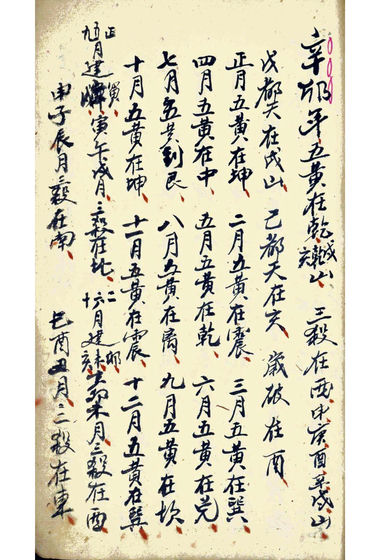 辛卯年五黄在乾戌山 三殺在西申庚酉辛戌山
戊都天在戌山 己都天在亥 歲破在酉
正月五黄在坤 二月五黄在震 三月五黄在巽
四月五黄在中 五月五黄在乾 六月五黄在兑
七月五黄到艮 八月五黄在离 九月五黄在坎
十月五黄在坤 十一月五黄在震 十二月五黄在巽
正五九月建寅 寅午戌月三殺在北 二六十月建卯 亥卯未月三殺在西
申子辰月三殺在南 巳酉丑月三殺在東